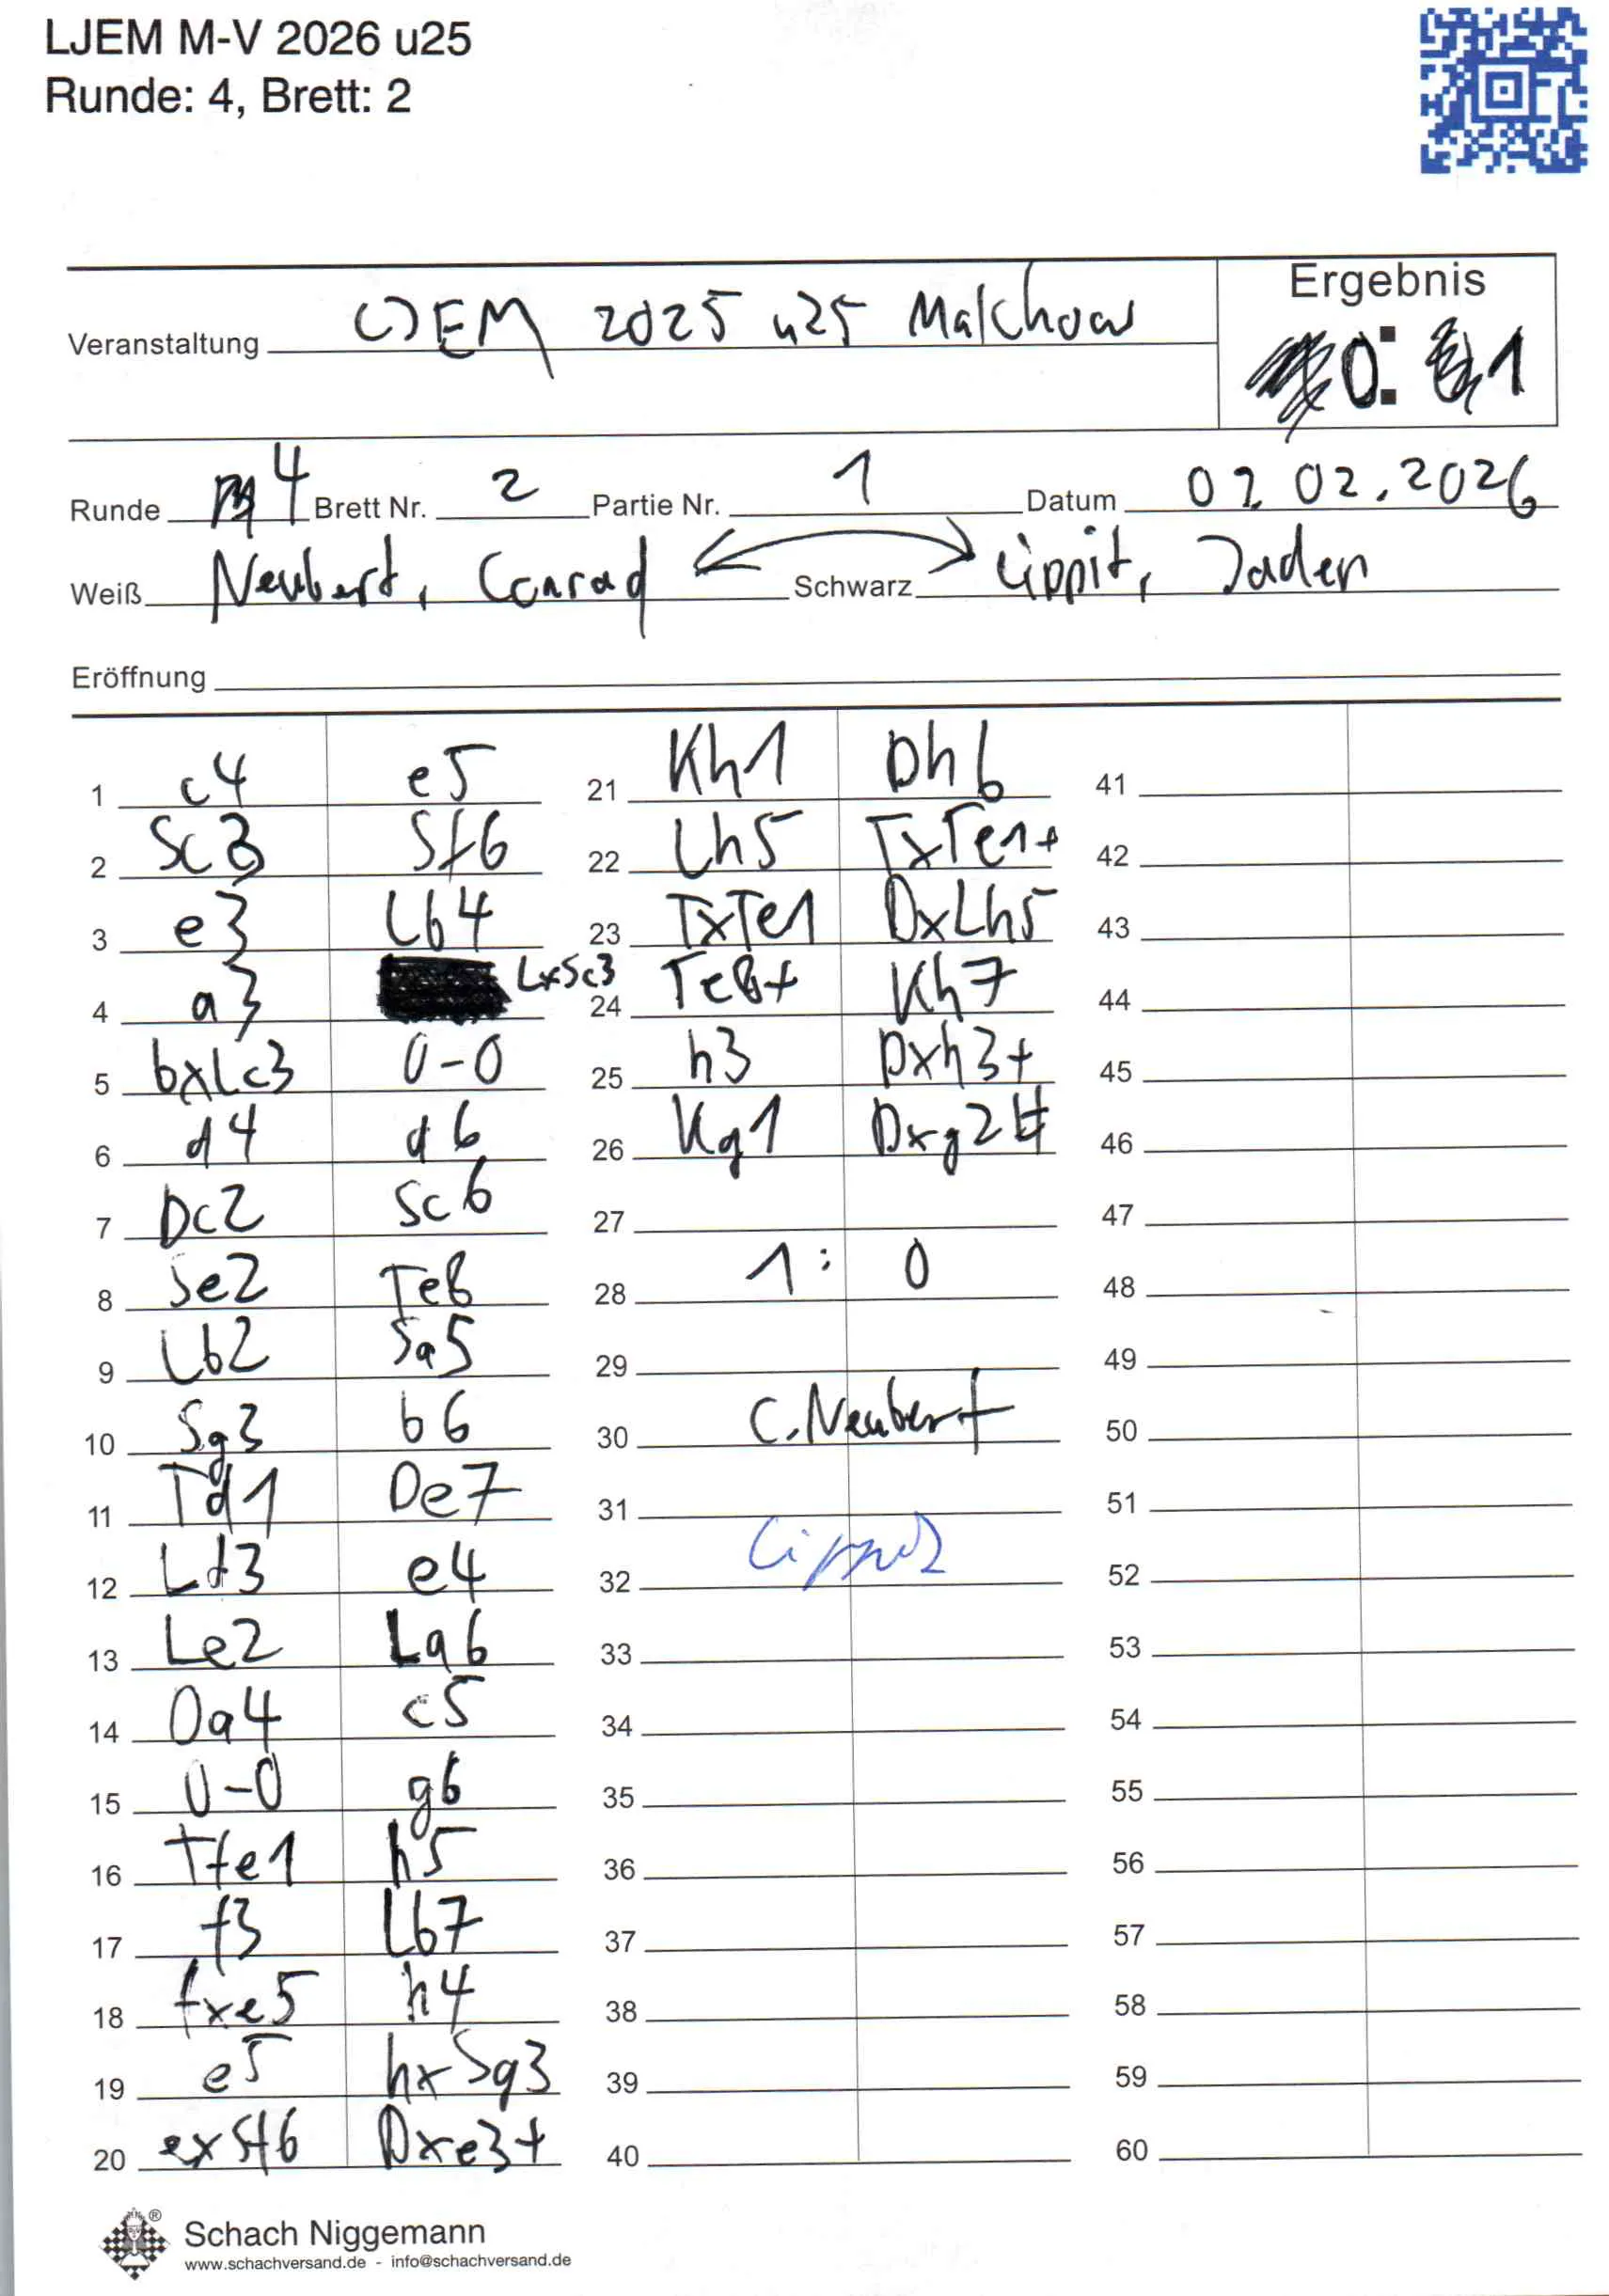 LJEM M-V 2026 u25
Runde: 4, Brett: 2
Ergebnis
Veranstaltung LJEM 2025 u25 Malchow
0 : 1
Runde 4 Brett Nr. 2 Partie Nr. 1 Datum 02.02.2026
Weiß Neubert, Conrad Schwarz Lippit, Jaden
Eröffnung
1 c4 e5 21 Kh1 Dh6 41
2 Sc3 Sf6 22 Lh5 TxTe1+ 42
3 e3 Lb4 23 TxTe1 DxLh5 43
4 a3 LxSc3 24 Te8+ Kh7 44
5 bxLc3 0-0 25 h3 Dxh3+ 45
6 d4 d6 26 Kg1 Dxg2# 46
7 Dc2 Sc6 27 47
8 Se2 Te8 28 1 : 0 48
9 Lb2 Sa5 29 49
10 Sg3 b6 30 C. Neubert 50
11 Td1 De7 31 51
12 Ld3 e4 32 Lippit 52
13 Le2 La6 33 53
14 Da4 c5 34 54
15 0-0 g6 35 55
16 Tfe1 h5 36 56
17 f3 Lb7 37 57
18 fxe5 h4 38 58
19 e5 hxSg3 39 59
20 exSf6 Dxe3+ 40 60
®
Schach Niggemann
www.schachversand.de - info@schachversand.de